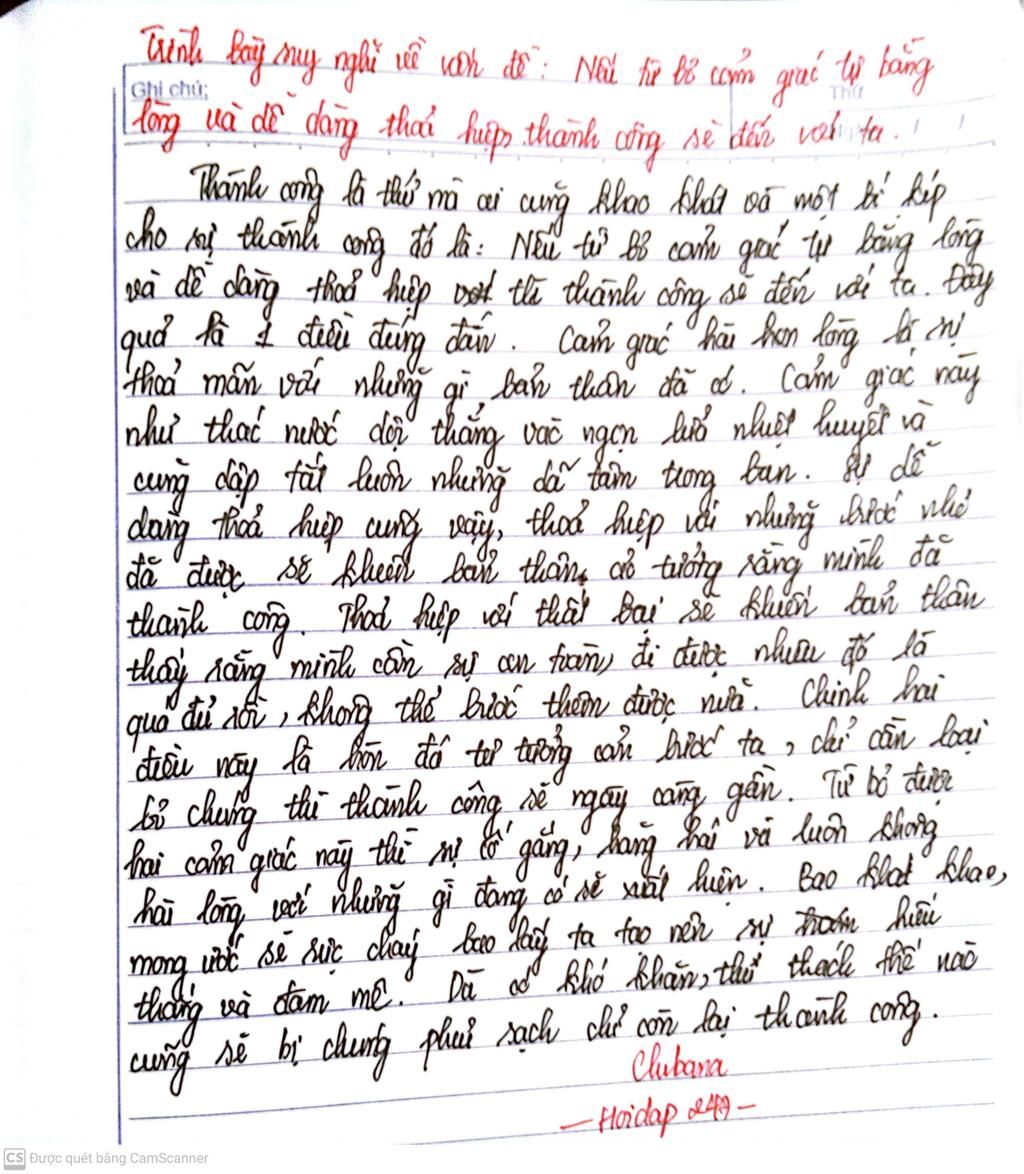 Trình bày suy nghĩ về vấn đề: Nếu từ bỏ cảm giác tự bằng
Ghi chú:
Thứ
lòng và dễ dàng thoả hiệp, thành công sẽ đến với ta.
Thành công là thứ mà ai cũng khao khát và một bí kíp
cho sự thành công đó là: Nếu từ bỏ cảm giác tự bằng lòng
và dễ dàng thoả hiệp thì thành công sẽ đến với ta. Đây
quả là 1 điều đúng đắn. Cảm giác hài hơn lòng là sự
thoả mãn với những gì bản thân đã có. Cảm giác này
như thác nước dội thẳng vào ngọn lửa nhiệt huyết và
cũng dập tắt luôn những dã tâm trong bạn. Sự dễ
dàng thoả hiệp cũng vậy, thoả hiệp với những bước nhỏ
đã được sẽ khiến bản thân ảo tưởng rằng mình đã
thành công. Thoả hiệp với thất bại sẽ khiến bản thân
thấy rằng mình cần sự an toàn, đi được nhiêu đó là
quá đủ rồi, không thể bước thêm được nữa. Chính hai
điều này là hòn đá tư tưởng cản bước ta, chỉ cần loại
bỏ chúng thì thành công sẽ ngày càng gần. Từ bỏ được
hai cảm giác này thì sự cố gắng, hăng hái và luôn không
hài lòng với những gì đang có sẽ xuất hiện. Bao khát khao,
mong ước sẽ rực cháy bao lấy ta tạo nên sự hiếu
thắng và đam mê. Dù có khó khăn, thử thách thế nào
cũng sẽ bị chúng phủi sạch chỉ còn lại thành công.
Clubana
— Hoidap 247 —
CS Được quét bằng CamScanner